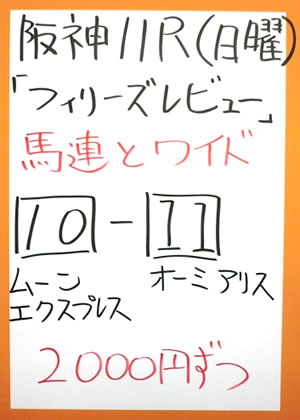 阪神11R(日曜)
「フィリーズレビュー」
馬連とワイド
10-11
ムーン
エクスプレス
オーミアリス
2000円ずつ